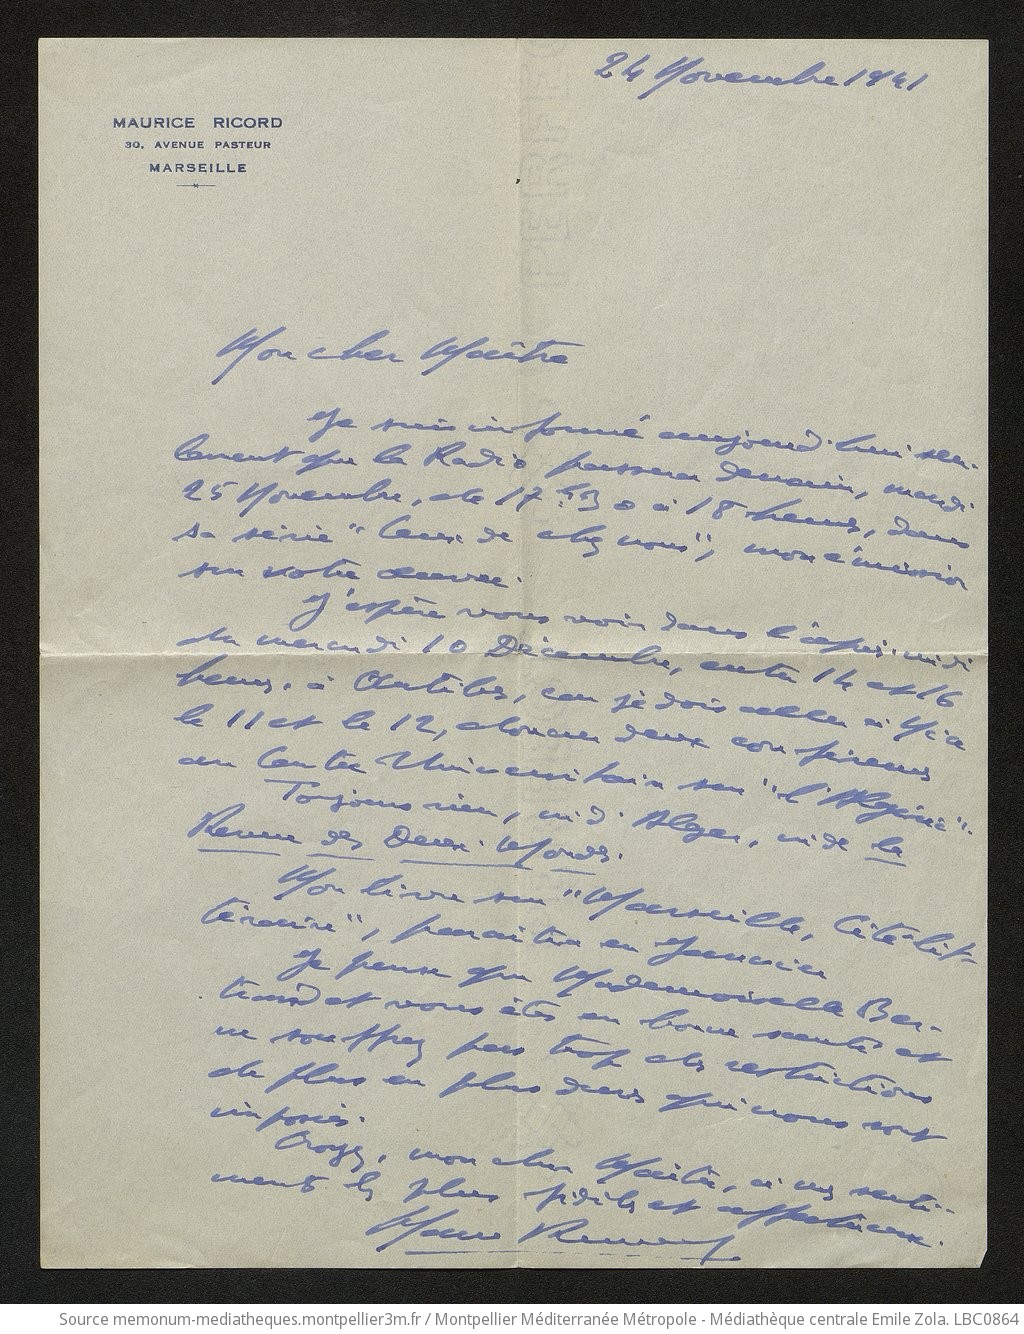 24 Novembre 1941
MAURICE RICORD
30, AVENUE PASTEUR
MARSEILLE
Mon cher Maître
Je suis informé aujourd'hui seu-
lement que la Radio passera demain, mardi
25 Novembre, de 17 h 30 à 18 heures, dans
sa série "Ceux de chez nous", mon émission
sur votre œuvre.
J'espère vous voir dans l'après-midi
du mercredi 10 Décembre, entre 14 et 16
heures, à Antibes, car je dois aller à Nice
le 11 et le 12, donner deux conférences
au Centre Universitaire sur "l'Algérie".
Toujours rien, ni d'Alger, ni de la
Revue des Deux-Mondes.
Mon livre sur "Marseille, Cité lit-
téraire", paraîtra en Janvier
Je pense que Mademoiselle Ber-
trand et vous êtes en bonne santé et
ne souffrez pas trop des restrictions
de plus en plus dures qui nous sont
imposées.
Croyez, mon cher Maître, à mes senti-
ments les plus fidèles et affectueux.
Source memonum-mediatheques.montpellier3m.fr / Montpellier Méditerranée Métropole - Médiathèque centrale Emile Zola. LBC0864